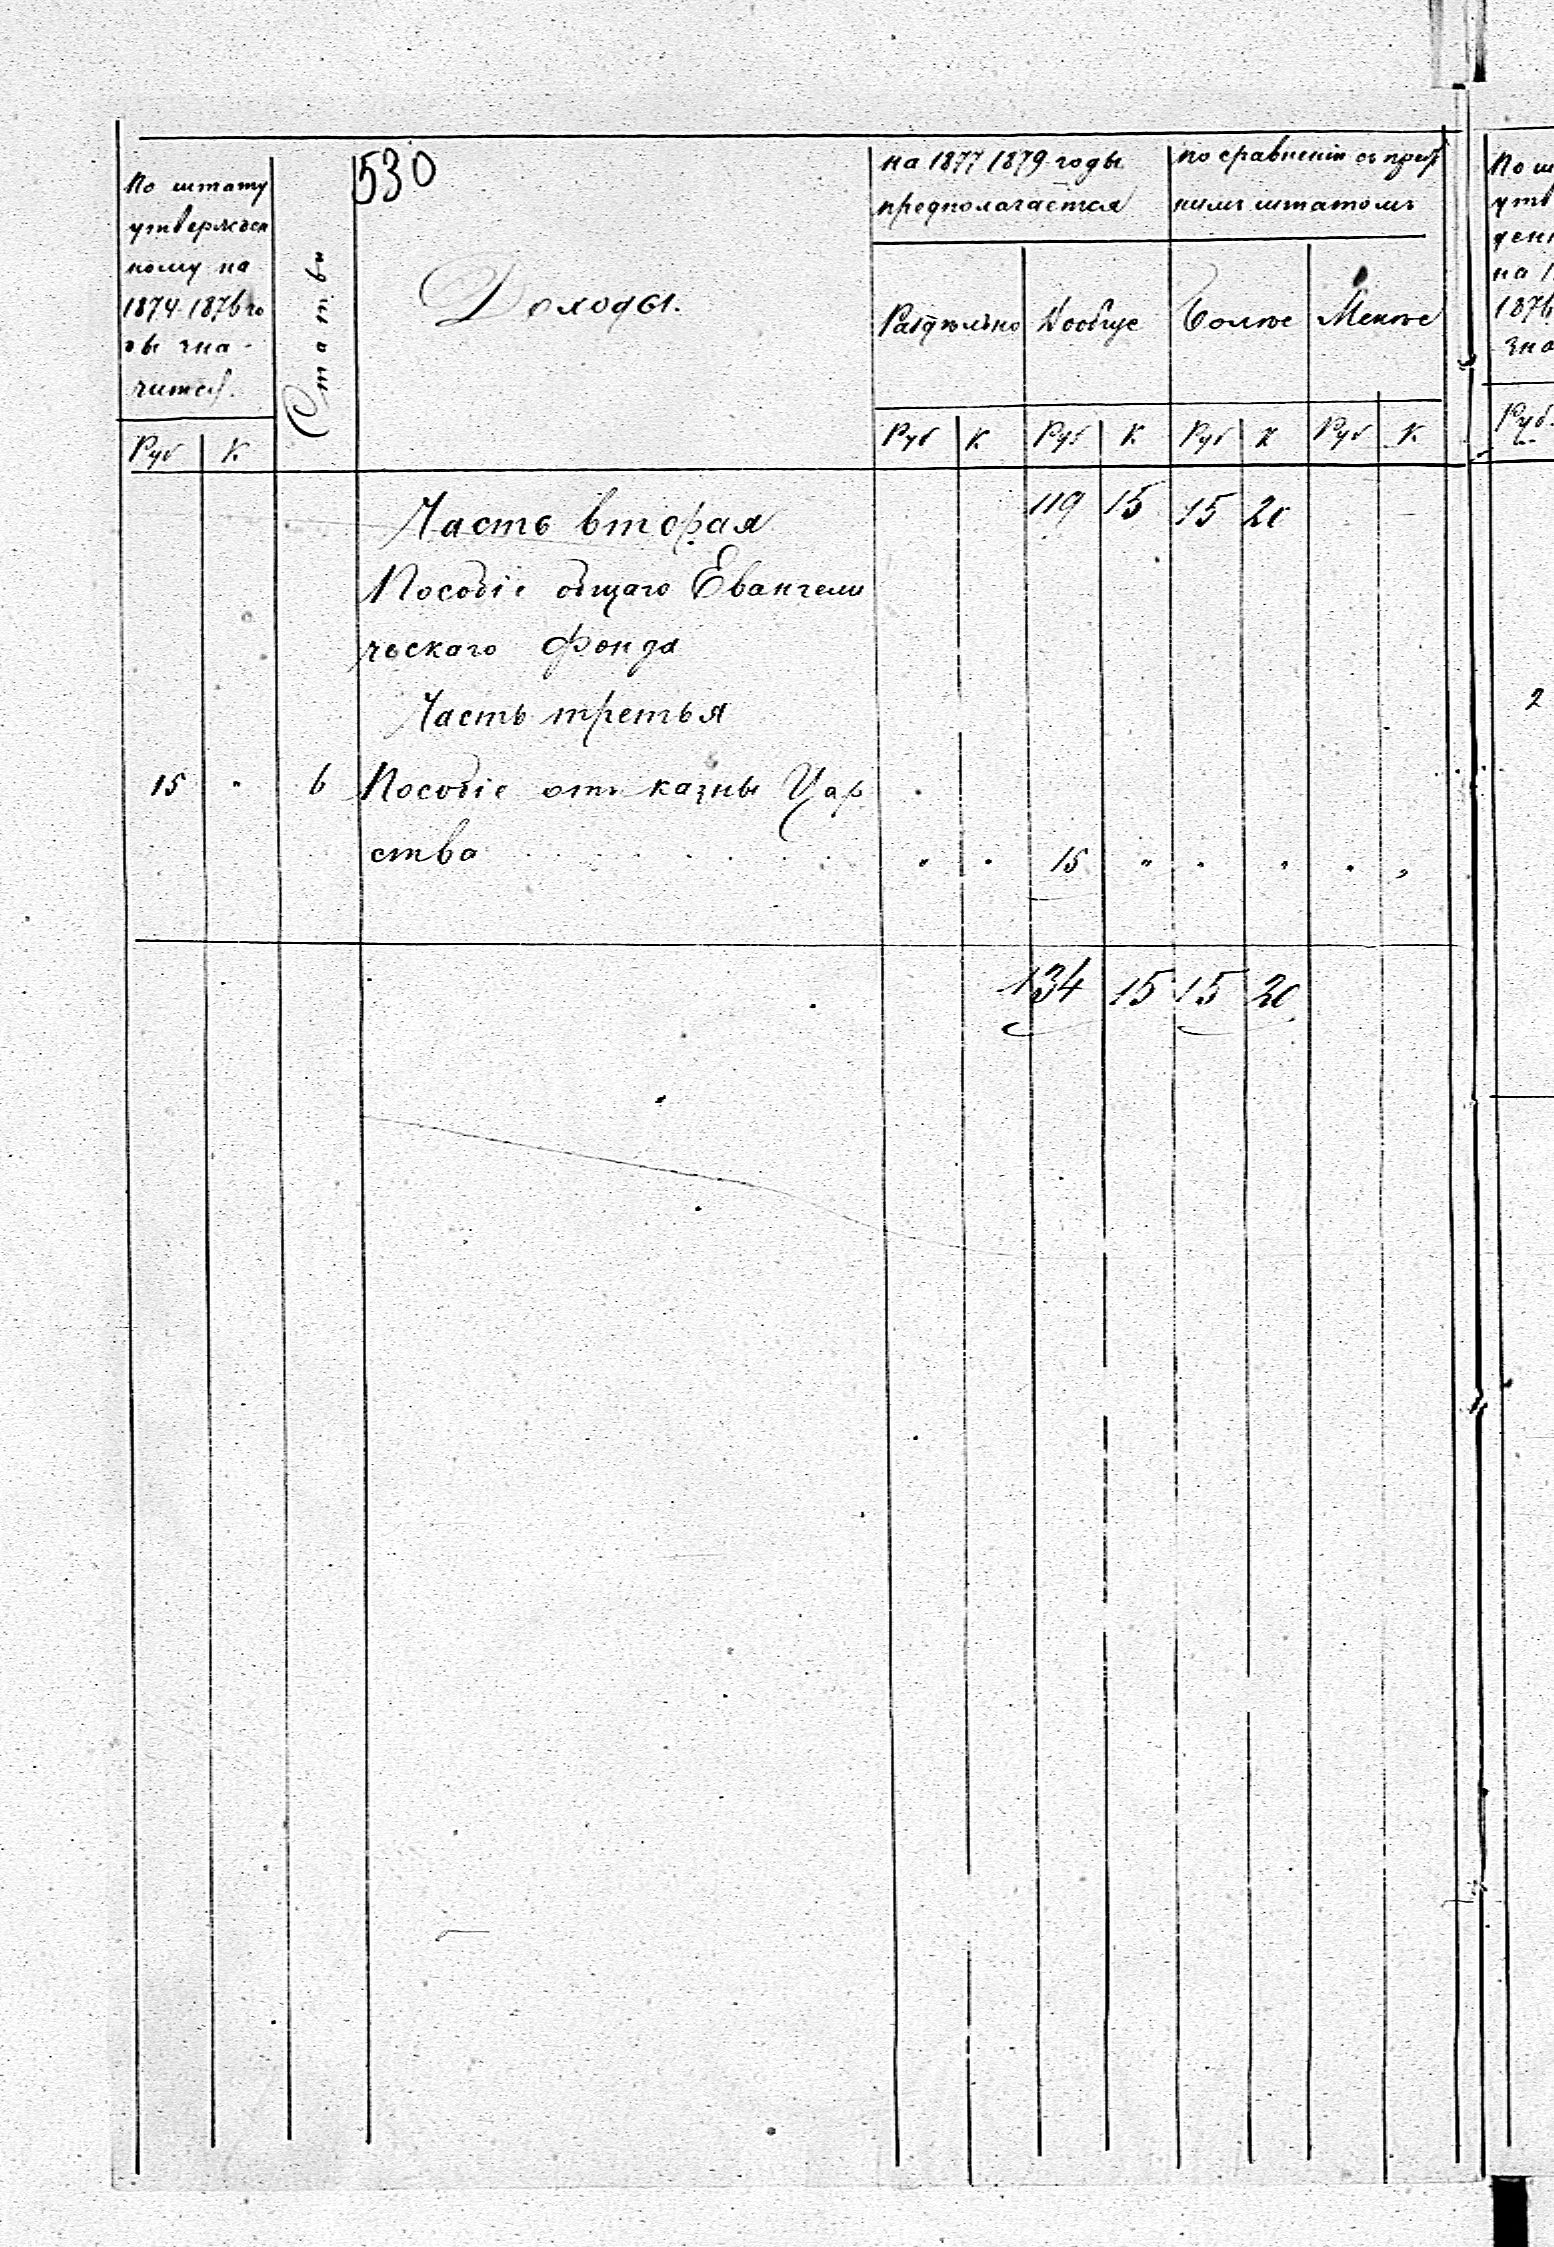 530
По штату
утвержден
ному на
1874-1876 го
ды зна-
чится.
Статьи
Доходы.
на 1877 1879 годы
предполагается
по сравненію съ преж
нимъ штатомъ
Раздѣльно Вообще Болѣе Менѣе
Руб К. Руб К. Руб К. Руб К Руб К.
Часть вторая 119 15 15 20
Пособіе общаго Евангели
ческаго фонда
Часть третья
15 " 6 Пособіе отъ казны Цар
ства . . . . . . . . " " 15 " " " " "
134 15 15 20
По ш
утв
ден
на 1
1876
зна
Руб.
2